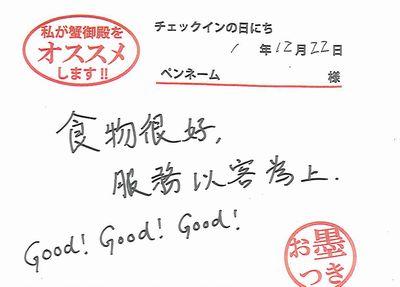 私が蟹御殿を
オススメ
します!!
チェックインの日にち
1 年12月22日
ペンネーム 様
食物很好,
服務以客為上.
Good! Good! Good!
お墨
つき